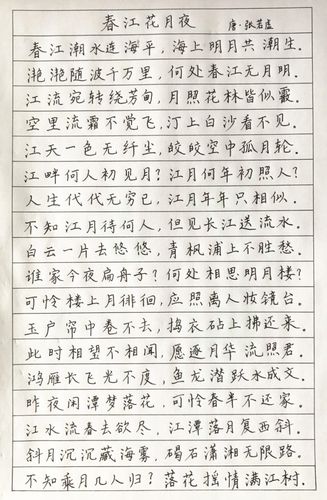 春江花月夜
唐·张若虚
春江潮水连海平,海上明月共潮生.
滟滟随波千万里,何处春江无月明.
江流宛转绕芳甸,月照花林皆似霰.
空里流霜不觉飞,汀上白沙看不见.
江天一色无纤尘,皎皎空中孤月轮.
江畔何人初见月?江月何年初照人?
人生代代无穷已,江月年年只相似.
不知江月待何人,但见长江送流水.
白云一片去悠悠,青枫浦上不胜愁.
谁家今夜扁舟子?何处相思明月楼?
可怜楼上月徘徊,应照离人妆镜台.
玉户帘中卷不去,捣衣砧上拂还来.
此时相望不相闻,愿逐月华流照君.
鸿雁长飞光不度,鱼龙潜跃水成文.
昨夜闲潭梦落花,可怜春半不还家.
江水流春去欲尽,江潭落月复西斜.
斜月沉沉藏海雾,碣石潇湘无限路.
不知乘月几人归?落花摇情满江树.